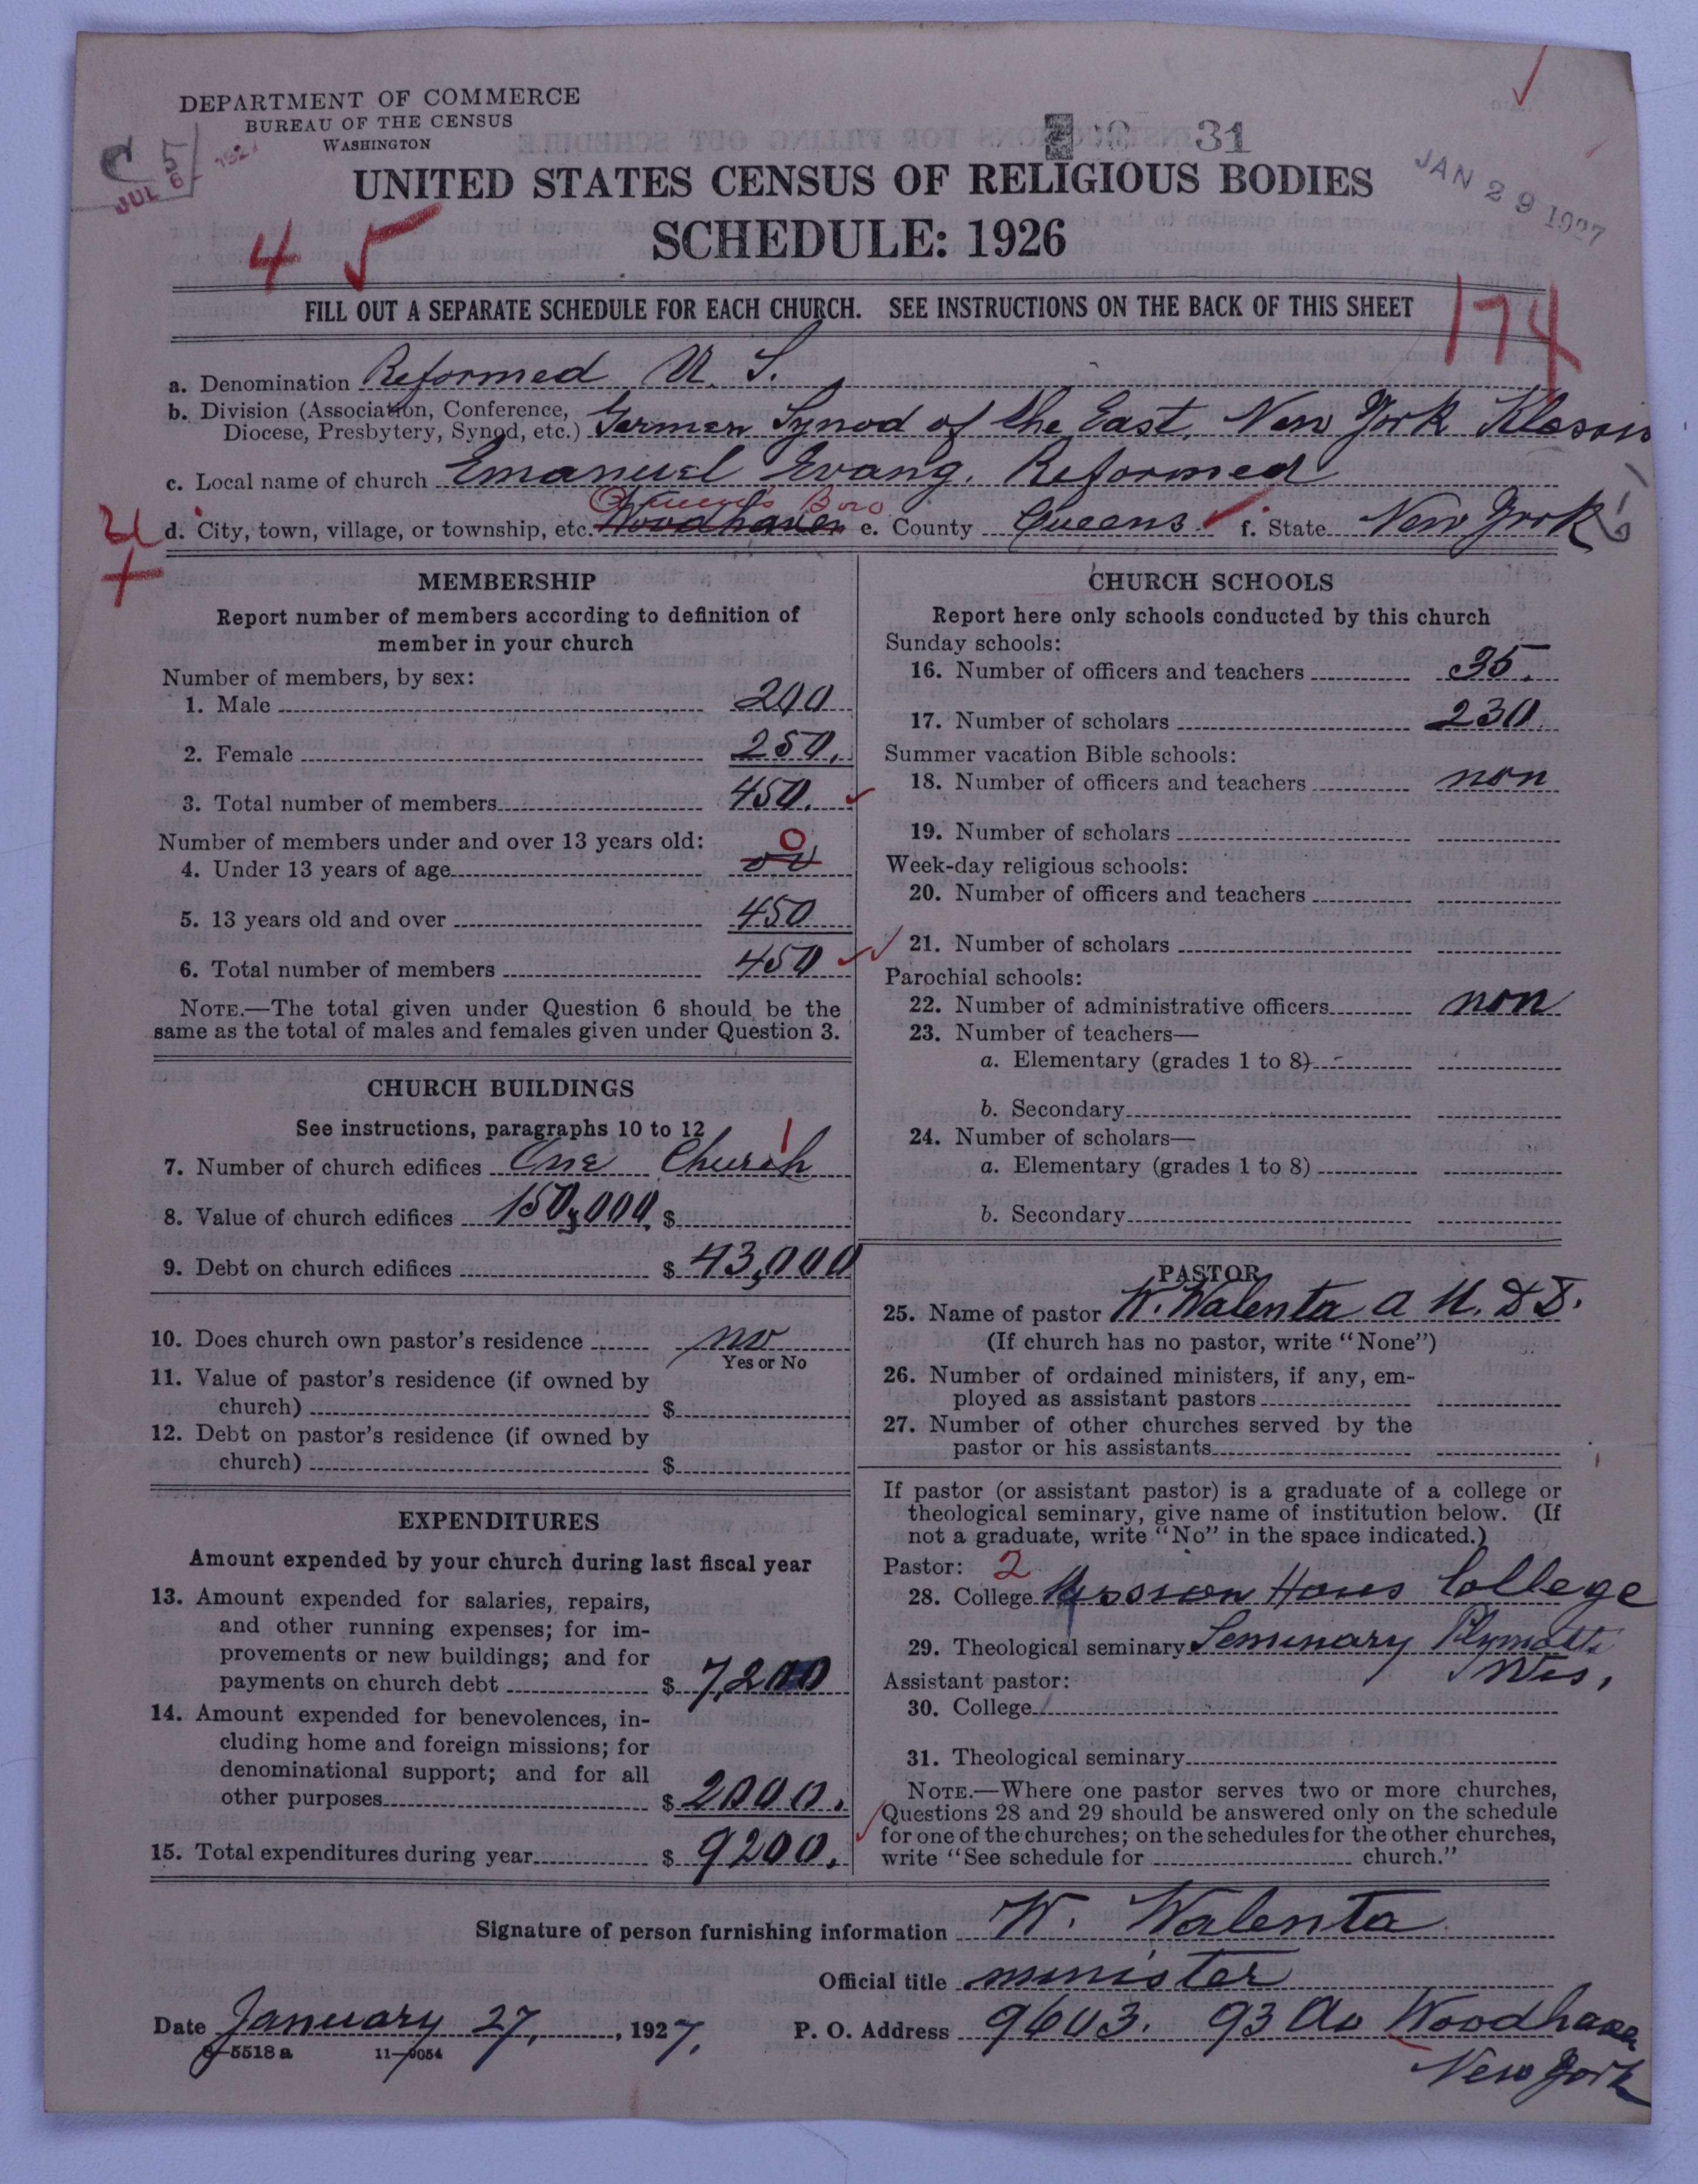 DEPARTMENT OF COMMERCE
BUREAU OF THE CENSUS
WASHINGTON
C 5
JUL 6 - 1927
31
JAN 29 1927
UNITED STATES CENSUS OF RELIGIOUS BODIES
SCHEDULE: 1926
4 5
FILL OUT A SEPARATE SCHEDULE FOR EACH CHURCH. SEE INSTRUCTIONS ON THE BACK OF THIS SHEET
174
a. Denomination Reformed U. S.
b. Division (Association, Conference, Diocese, Presbytery, Synod, etc.) German Synod of the East, New York Klassis
c. Local name of church Emanuel Evang. Reformed
Queens Boro
d. City, town, village, or township, etc. Woodhaven e. County Queens f. State New York
MEMBERSHIP
Report number of members according to definition of
member in your church
Number of members, by sex:
1. Male 200
2. Female 250.
3. Total number of members 450.
Number of members under and over 13 years old:
0
4. Under 13 years of age
5. 13 years old and over 450
6. Total number of members 450
NOTE.—The total given under Question 6 should be the
same as the total of males and females given under Question 3.
CHURCH BUILDINGS
See instructions, paragraphs 10 to 12
1
7. Number of church edifices One Church
8. Value of church edifices 150,000 $
9. Debt on church edifices $ 43,000
10. Does church own pastor's residence no
Yes or No
11. Value of pastor's residence (if owned by
church) $
12. Debt on pastor's residence (if owned by
church) $
EXPENDITURES
Amount expended by your church during last fiscal year
13. Amount expended for salaries, repairs,
and other running expenses; for im-
provements or new buildings; and for
payments on church debt $ 7,200
14. Amount expended for benevolences, in-
cluding home and foreign missions; for
denominational support; and for all
other purposes $ 2000.
15. Total expenditures during year $ 9200.
CHURCH SCHOOLS
Report here only schools conducted by this church
Sunday schools:
16. Number of officers and teachers 35.
17. Number of scholars 230.
Summer vacation Bible schools:
18. Number of officers and teachers non
19. Number of scholars
Week-day religious schools:
20. Number of officers and teachers
21. Number of scholars
Parochial schools:
22. Number of administrative officers non
23. Number of teachers—
a. Elementary (grades 1 to 8)
b. Secondary
24. Number of scholars—
a. Elementary (grades 1 to 8)
b. Secondary
PASTOR
25. Name of pastor W. Walenta A M. D D.
(If church has no pastor, write "None")
26. Number of ordained ministers, if any, em-
ployed as assistant pastors
27. Number of other churches served by the
pastor or his assistants
If pastor (or assistant pastor) is a graduate of a college or
theological seminary, give name of institution below. (If
not a graduate, write "No" in the space indicated.)
Pastor: 2
28. College Mission Hous College
29. Theological seminary Seminary Plymouth
Wis.
Assistant pastor:
30. College
31. Theological seminary
NOTE.—Where one pastor serves two or more churches,
Questions 28 and 29 should be answered only on the schedule
for one of the churches; on the schedules for the other churches,
write "See schedule for church."
Signature of person furnishing information W. Walenta
Official title minister
Date January 27, 1927. P. O. Address 9603. 93 Av Woodhaven
8-5518 a 11-9054
New York